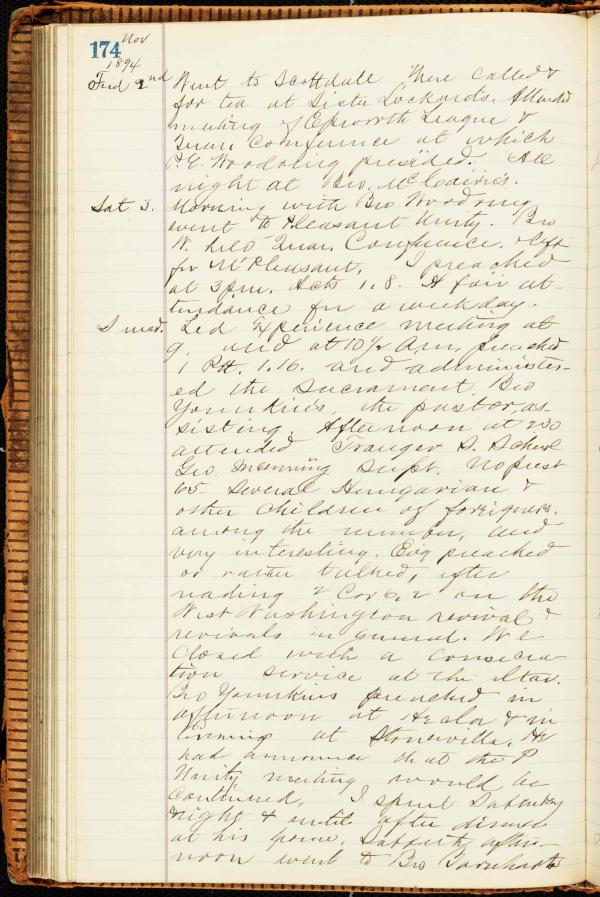 174 Nov
1894
Frid 2nd Went to Scottdale. There called &
for tea at Sister Lockard's. Attended
meeting of Epworth League &
Quar. Conference at which
P. E. Woodring presided. All
night at Bro. McCairns.
Sat 3. Morning with Bro Woodring
went to Pleasant Unity. Bro
W. held Quar. Conference, & left
for Mt Pleasant. I preached
at 3 pm. Acts 1.8. A fair at-
tendance for a week day.
Led Experience meeting at
9. and at 10½ A.m. preached
1 Pet. 1.16. and administer-
ed the Sacrament, Bro
Younkins, the pastor, as-
sisting. Afternoon at 2.30
attended Trauger S. School
Geo. Manning Supt. No prest
65- Several Hungarian &
other children of foreigners.
among the number, and
very interesting. Evg preached
or rather talked, after
reading 2 Cor 6.2 on the
West Washington revival &
revivals in general. We
closed with a consecra-
tion service at the altar.
Bro Younkins preached in
afternoon at Hecla & in
Evening at Stonerville. He
had announce that the P
Unity meeting would be
continued. I spent Saturday
night & until after dinner
at his home. Sabbath after-
noon went to Bro Barnharts